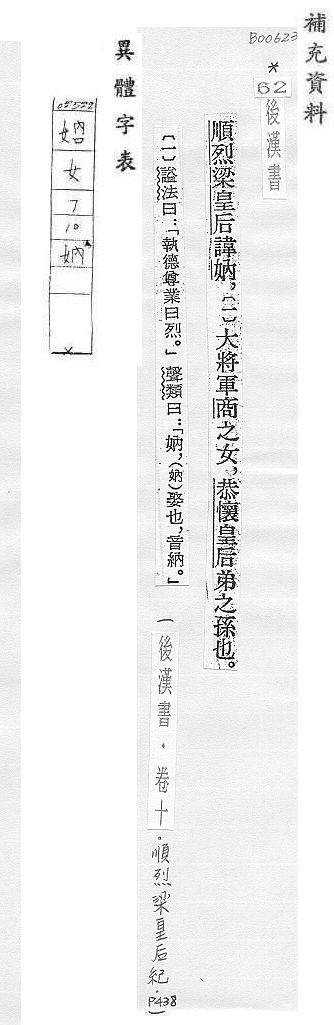 補充資料
B00623
*
62
後漢書
順烈梁皇后諱妠,〔一〕大將軍商之女,恭懷皇后弟之孫也。
〔一〕謚法曰:「執德尊業曰烈。」聲類曰:「妠,(妠)娶也,音納。」
(後漢書.卷十.順烈梁皇后紀.P438)
異體字表
女
7
10